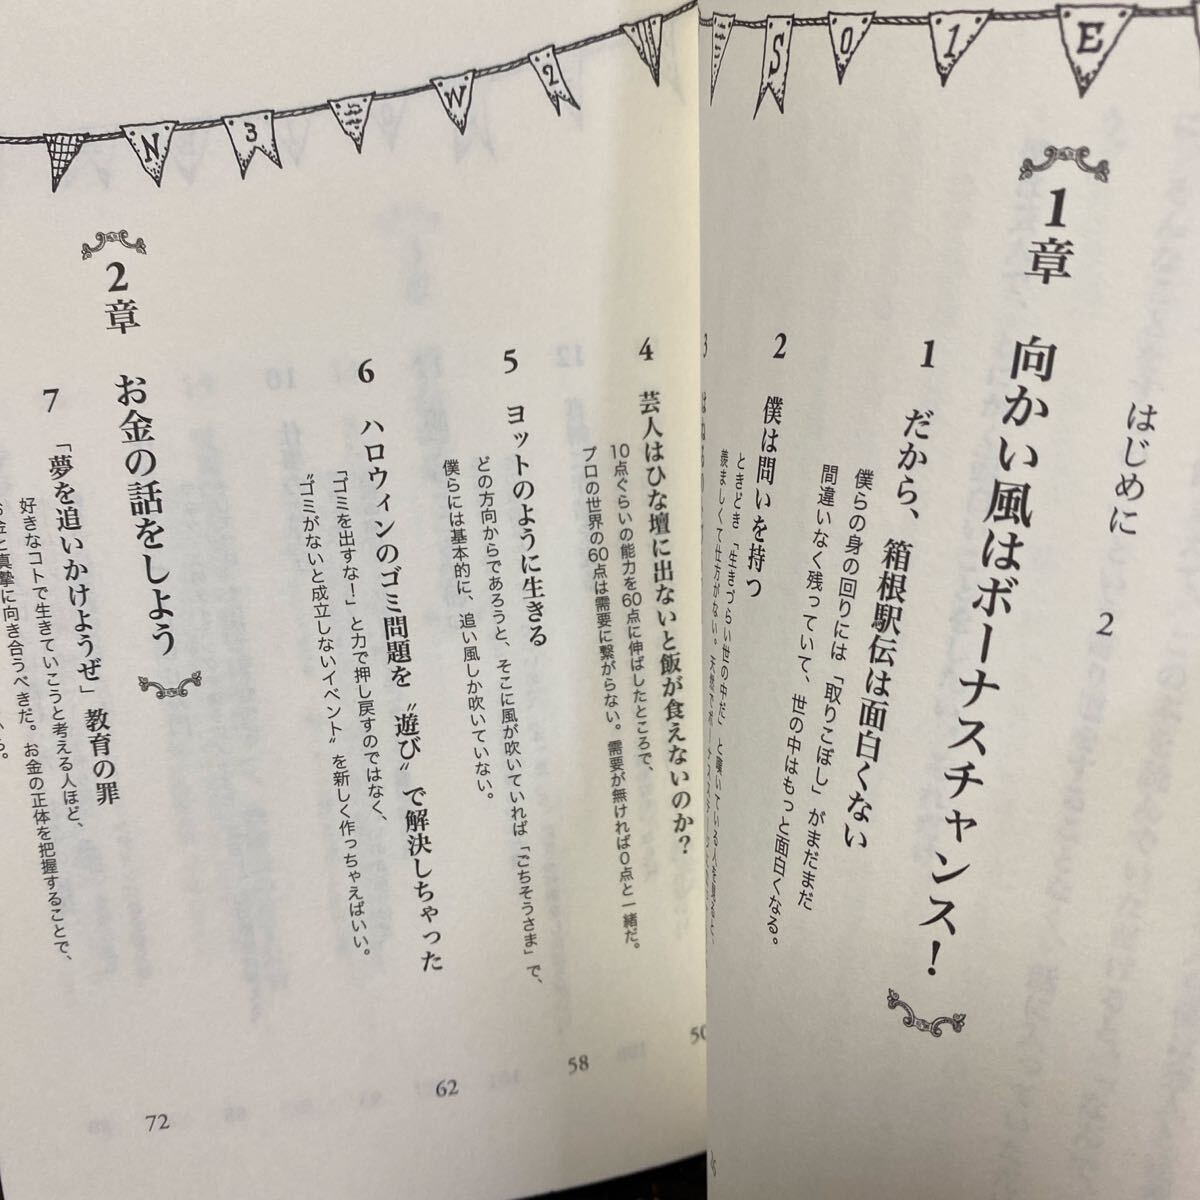 S O 1 E
はじめに 2
1章 向かい風はボーナスチャンス！
1 だから、箱根駅伝は面白くない
僕らの身の回りには「取りこぼし」がまだまだ
間違いなく残っていて、世の中はもっと面白くなる。
2 僕は問いを持つ
ときどき「生きづらい世の中だ」と嘆いている人を
羨ましくて仕方がない。
3
N 3 W 2
4 芸人はひな壇に出ないと飯が食えないのか？ 50
10点ぐらいの能力を60点に伸ばしたところで、
プロの世界の60点は需要に繋がらない。需要が無ければ0点と一緒だ。
5 ヨットのように生きる 58
どの方向からであろうと、そこに風が吹いていれば「ごちそうさま」で、
僕らには基本的に、追い風しか吹いていない。
6 ハロウィンのゴミ問題を〝遊び〟で解決しちゃった 62
「ゴミを出すな！」と力で押し戻すのではなく、
〝ゴミがないと成立しないイベント〟を新しく作っちゃえばいい。
2章 お金の話をしよう
7 「夢を追いかけようぜ」教育の罪 72
好きなコトで生きていこうと考える人ほど、
お金と真摯に向き合うべきだ。お金の正体を把握することで、